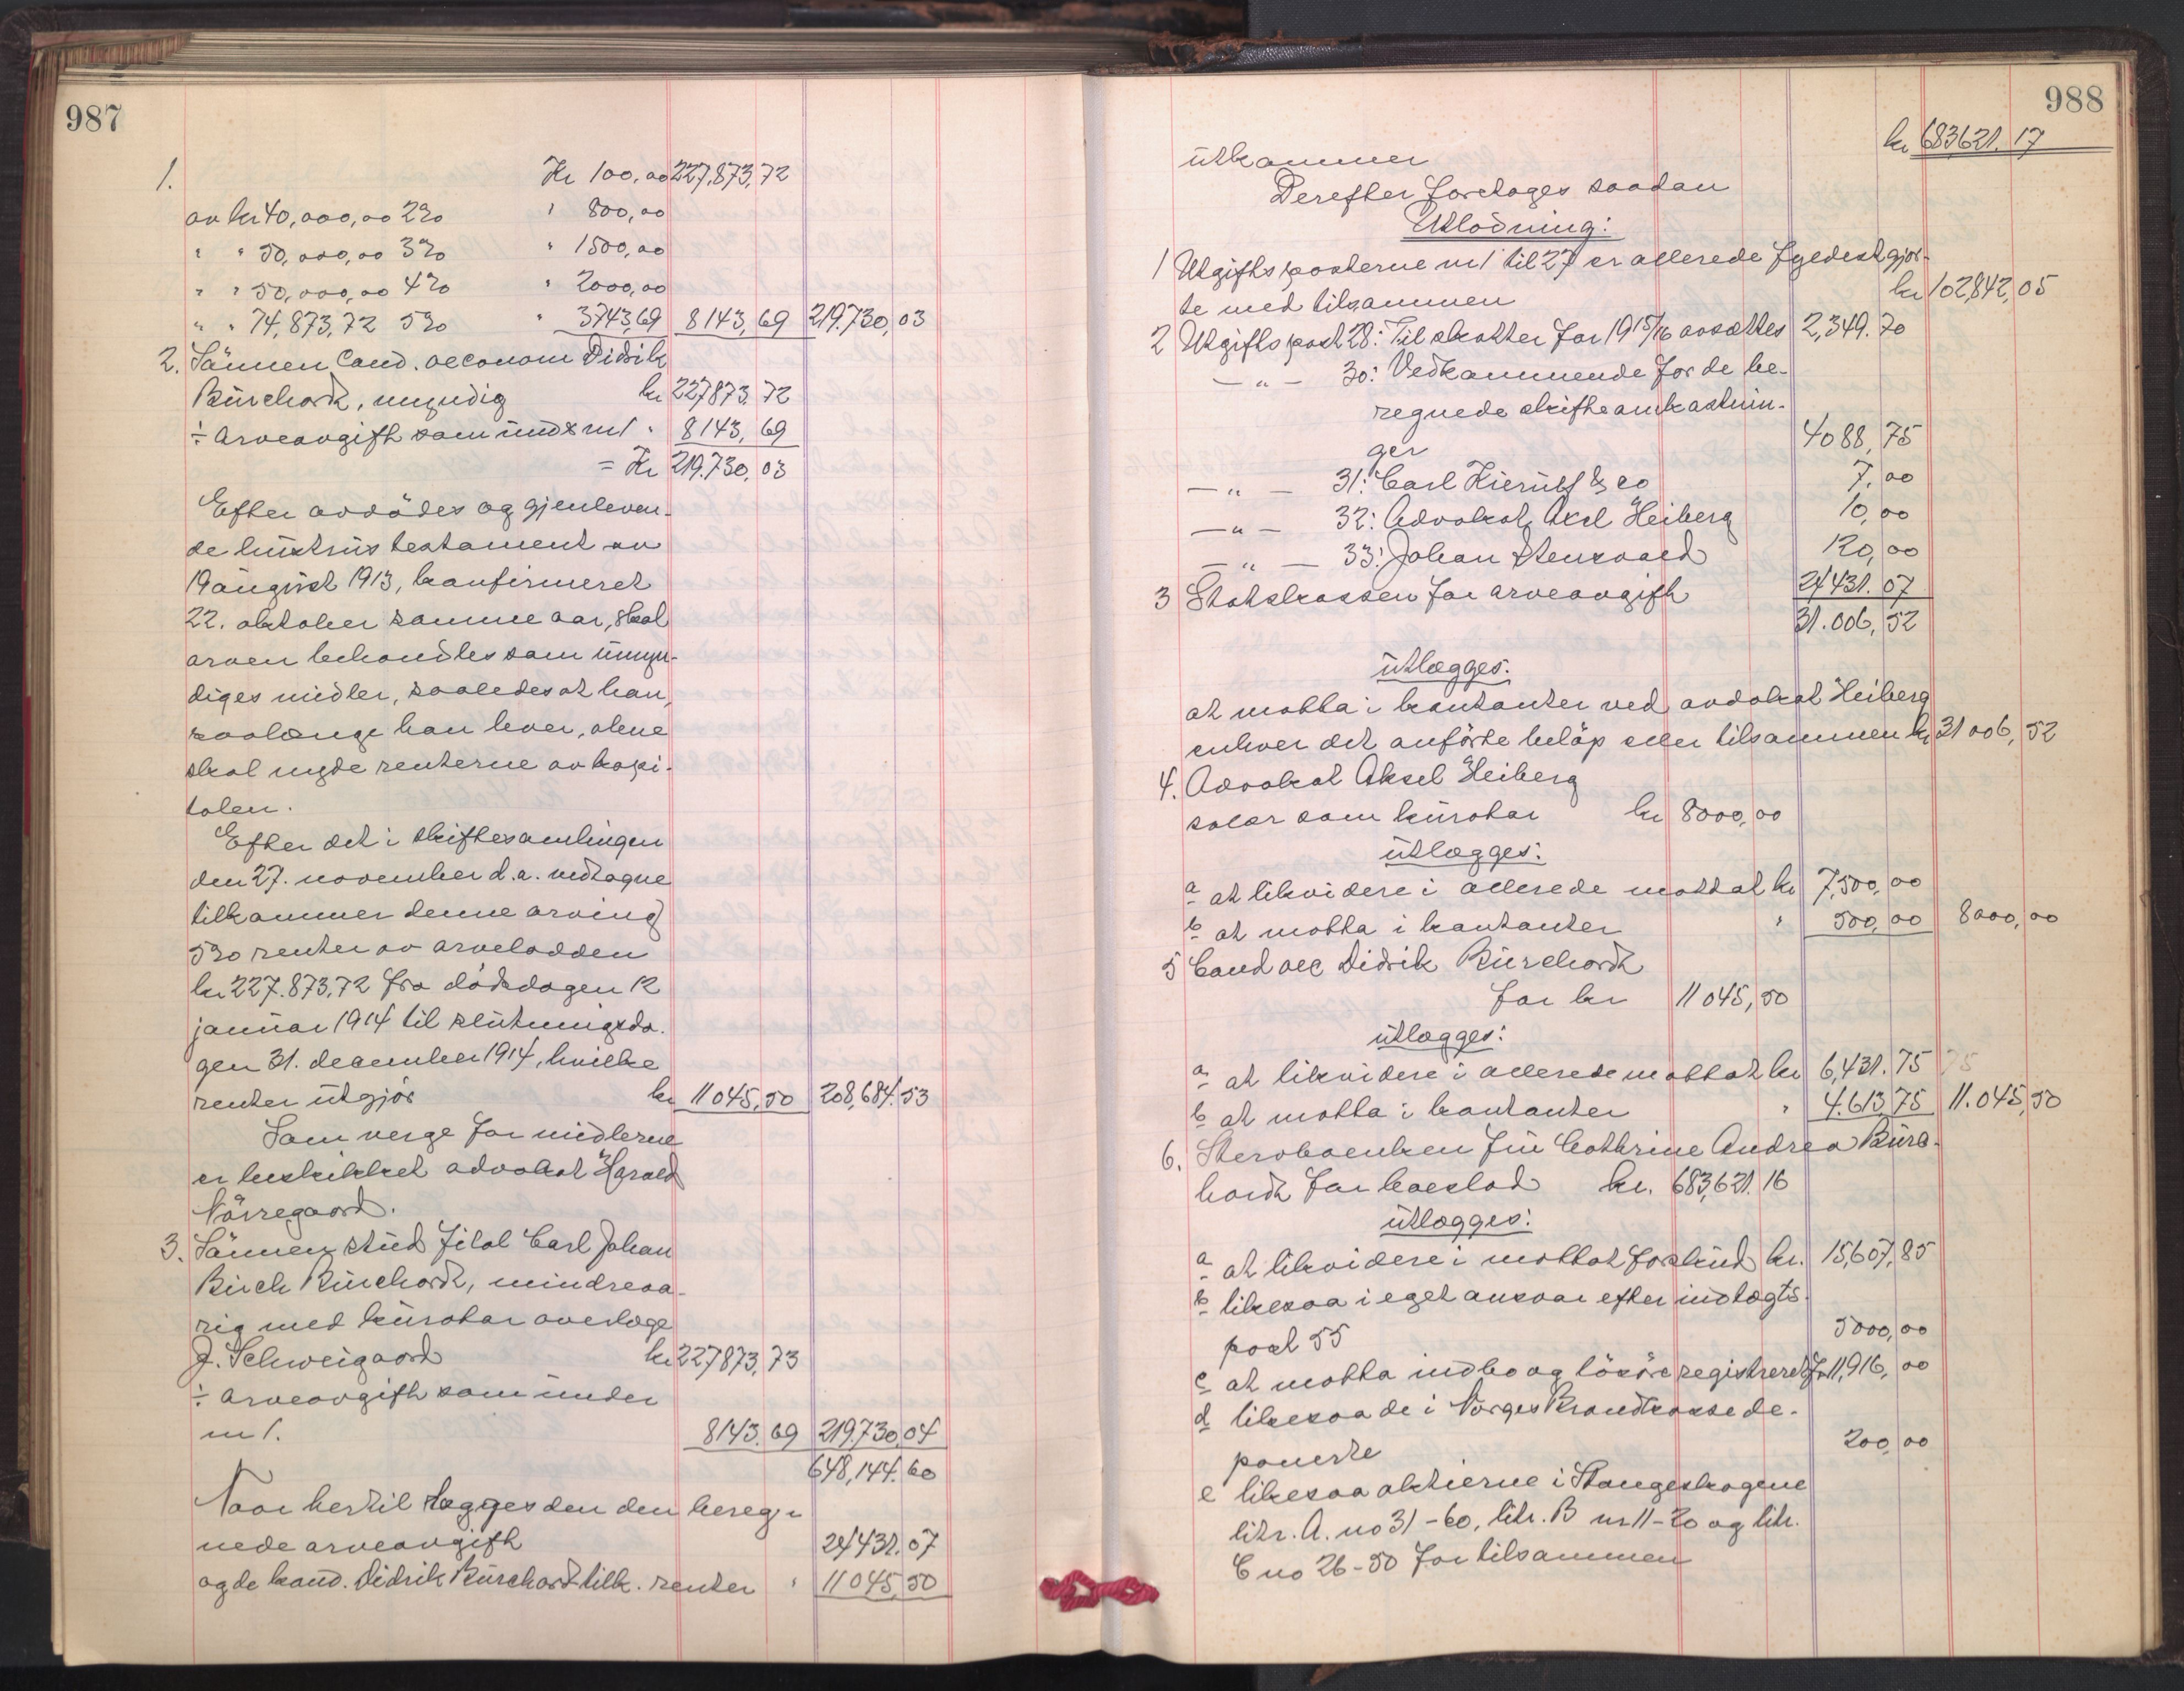 987
1. Kr 100,00 227,873,72
av kr 40,000,00 2% " 800,00
" " 50,000,00 3% " 1500,00
" " 50,000,00 4% " 2000,00
" " 74,873,72 5% " 3743,69 8143,69 219.730,03
2. Sönnen Cand. oeconom Didrik
Burchardt, umyndig kr 227873,72
÷ arveavgift som under nr 1 " 8143,69
= Kr 219.730,03
Efter avdödes og gjenleven-
de hustrus testament av
19 august 1913, konfirmeret
22. oktober samme aar, skal
arven behandles som umyn-
diges midler, saaledes at han,
saalænge han lever, alene
skal nyde renterne av kapi-
talen.
Efter det i skiftesamlingen
den 27. november d.a. vedtagne
tilkommer denne arving
5% renter av arvelodden
kr 227.873,72 fra dödsdagen 12
januar 1914 til slutningsda-
gen 31. december 1914, hvilke
renter utgjör kr 11045,50 208,684.53
Som verge for midlerne
er beskikket advokat Harald
Nörregaard.
3. Sönnen stud filol Carl Johan
Birch Burchardt, mindreaa-
rig med kurator overlæge
J. Schweigaard kr 227873,73
÷ arveavgift som under
nr 1. 8143.69 219.730,04
648,144.60
Naar hertil lægges den den bereg-
nede arveavgift 24431.07
og de kand. Didrik Burchardt tilk. renter " 11045,50
988
utkommer kr 683,621.17
Derefter foretages saadan
Utlodning:
1 Utgiftsposterne nr 1 til 27 er allerede fyldestgjor-
te med tilsammen kr 102,842,05
2 Utgiftspost 28: Til skatter for 1915/16 avsættes 2,349.70
— " — 30: Vedkommende for de be-
regnede skifteomkostnin-
ger 4088,75
— " — 31: Carl Kierulf & co 7,00
— " — 32: Advokat Axel Heiberg 10,00
— " — 33: Johan Stensvaed 120,00
3 Statskassen for arveavgift 24431.07
31.006,52
utlægges:
at motta i kontanter ved advokat Heiberg
enhver det anförte belöp eller tilsammen kr 31006,52
4. Advokat Aksel Heiberg
salær som kurator kr 8000,00
utlægges:
a at likvidere i allerede mottat kr 7,500,00
b at motta i kontanter " 500,00 8000,00
5 Cand oec Didrik Burchardt
for kr 11045,50
utlægges:
a at likvidere i allerede mottat kr 6,431.75 75
b at motta i kontanter " 4.613,75 11.045,50
6. Sterboenken fru Cathrine Andrea Burc-
hardt for boeslod kr. 683,621.16
utlægges:
a at likvidere i mottat forskud kr. 15,607,85
b likesaa i eget ansvar efter indtægts-
post 55 5000,00
c at motta indbo og lösöre registreret f. 11,916,00
d likesaa de i Norges Brandkasse de-
ponerte 200,00
e likesaa aktierne i Stangeskogene
litr. A. no 31-60, litr. B nr 11-20 og litr.
C no 26-50 for tilsammen